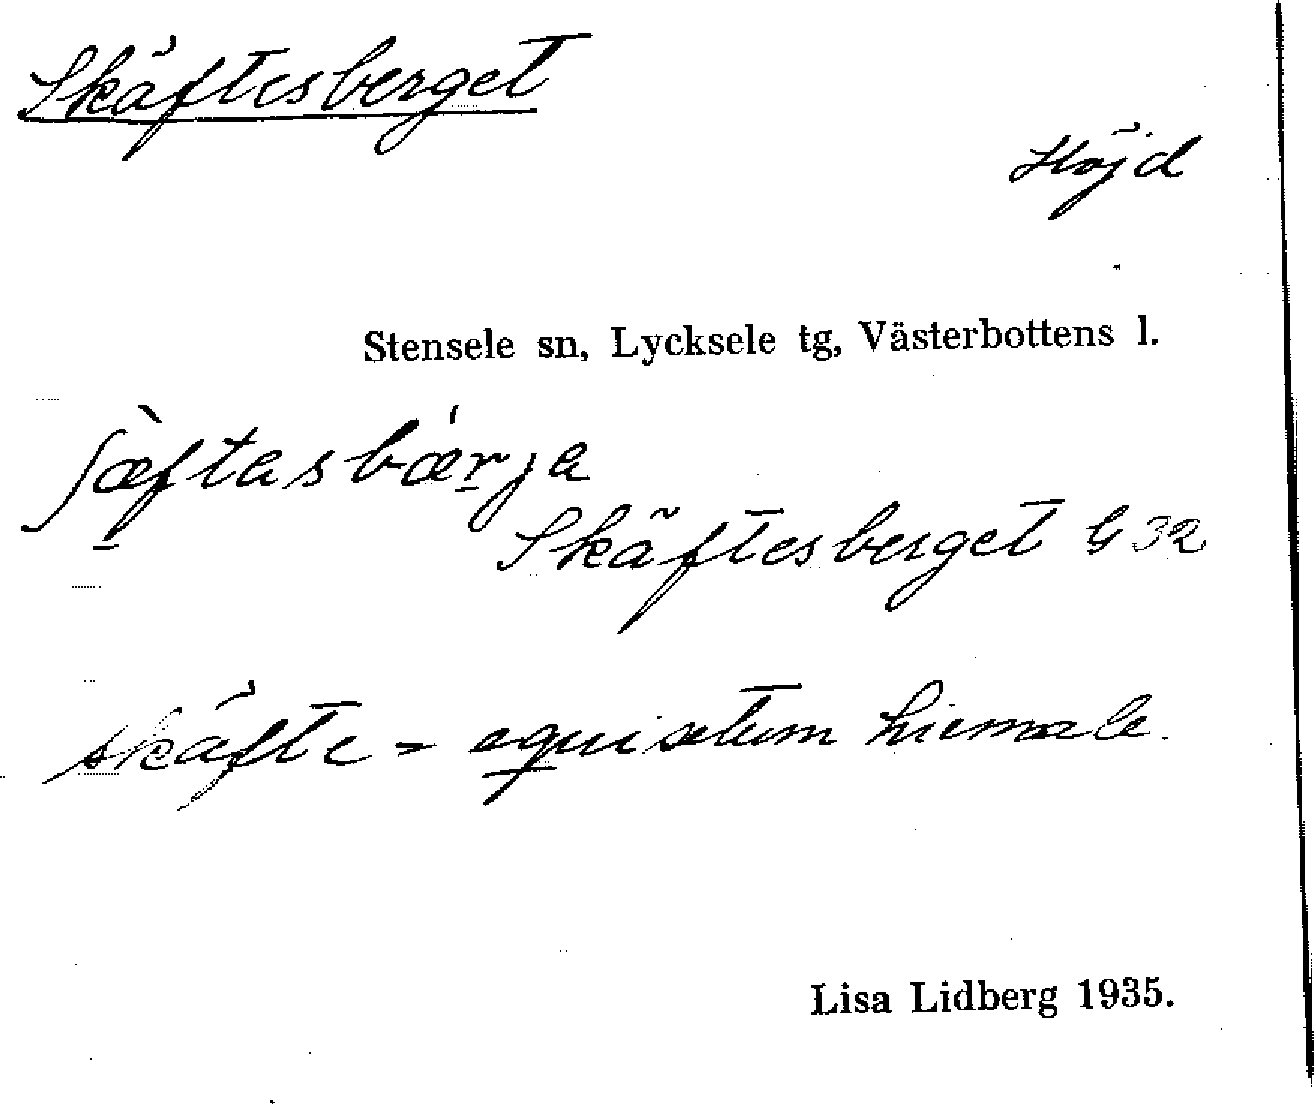 Skäftesberget
Höjd
Stensele sn, Lycksele tg, Västerbottens l.
ʃæ̀ftasbǽrja
Skäftesberget G 32
skäfte = equisetum hiemale.
Lisa Lidberg 1935.